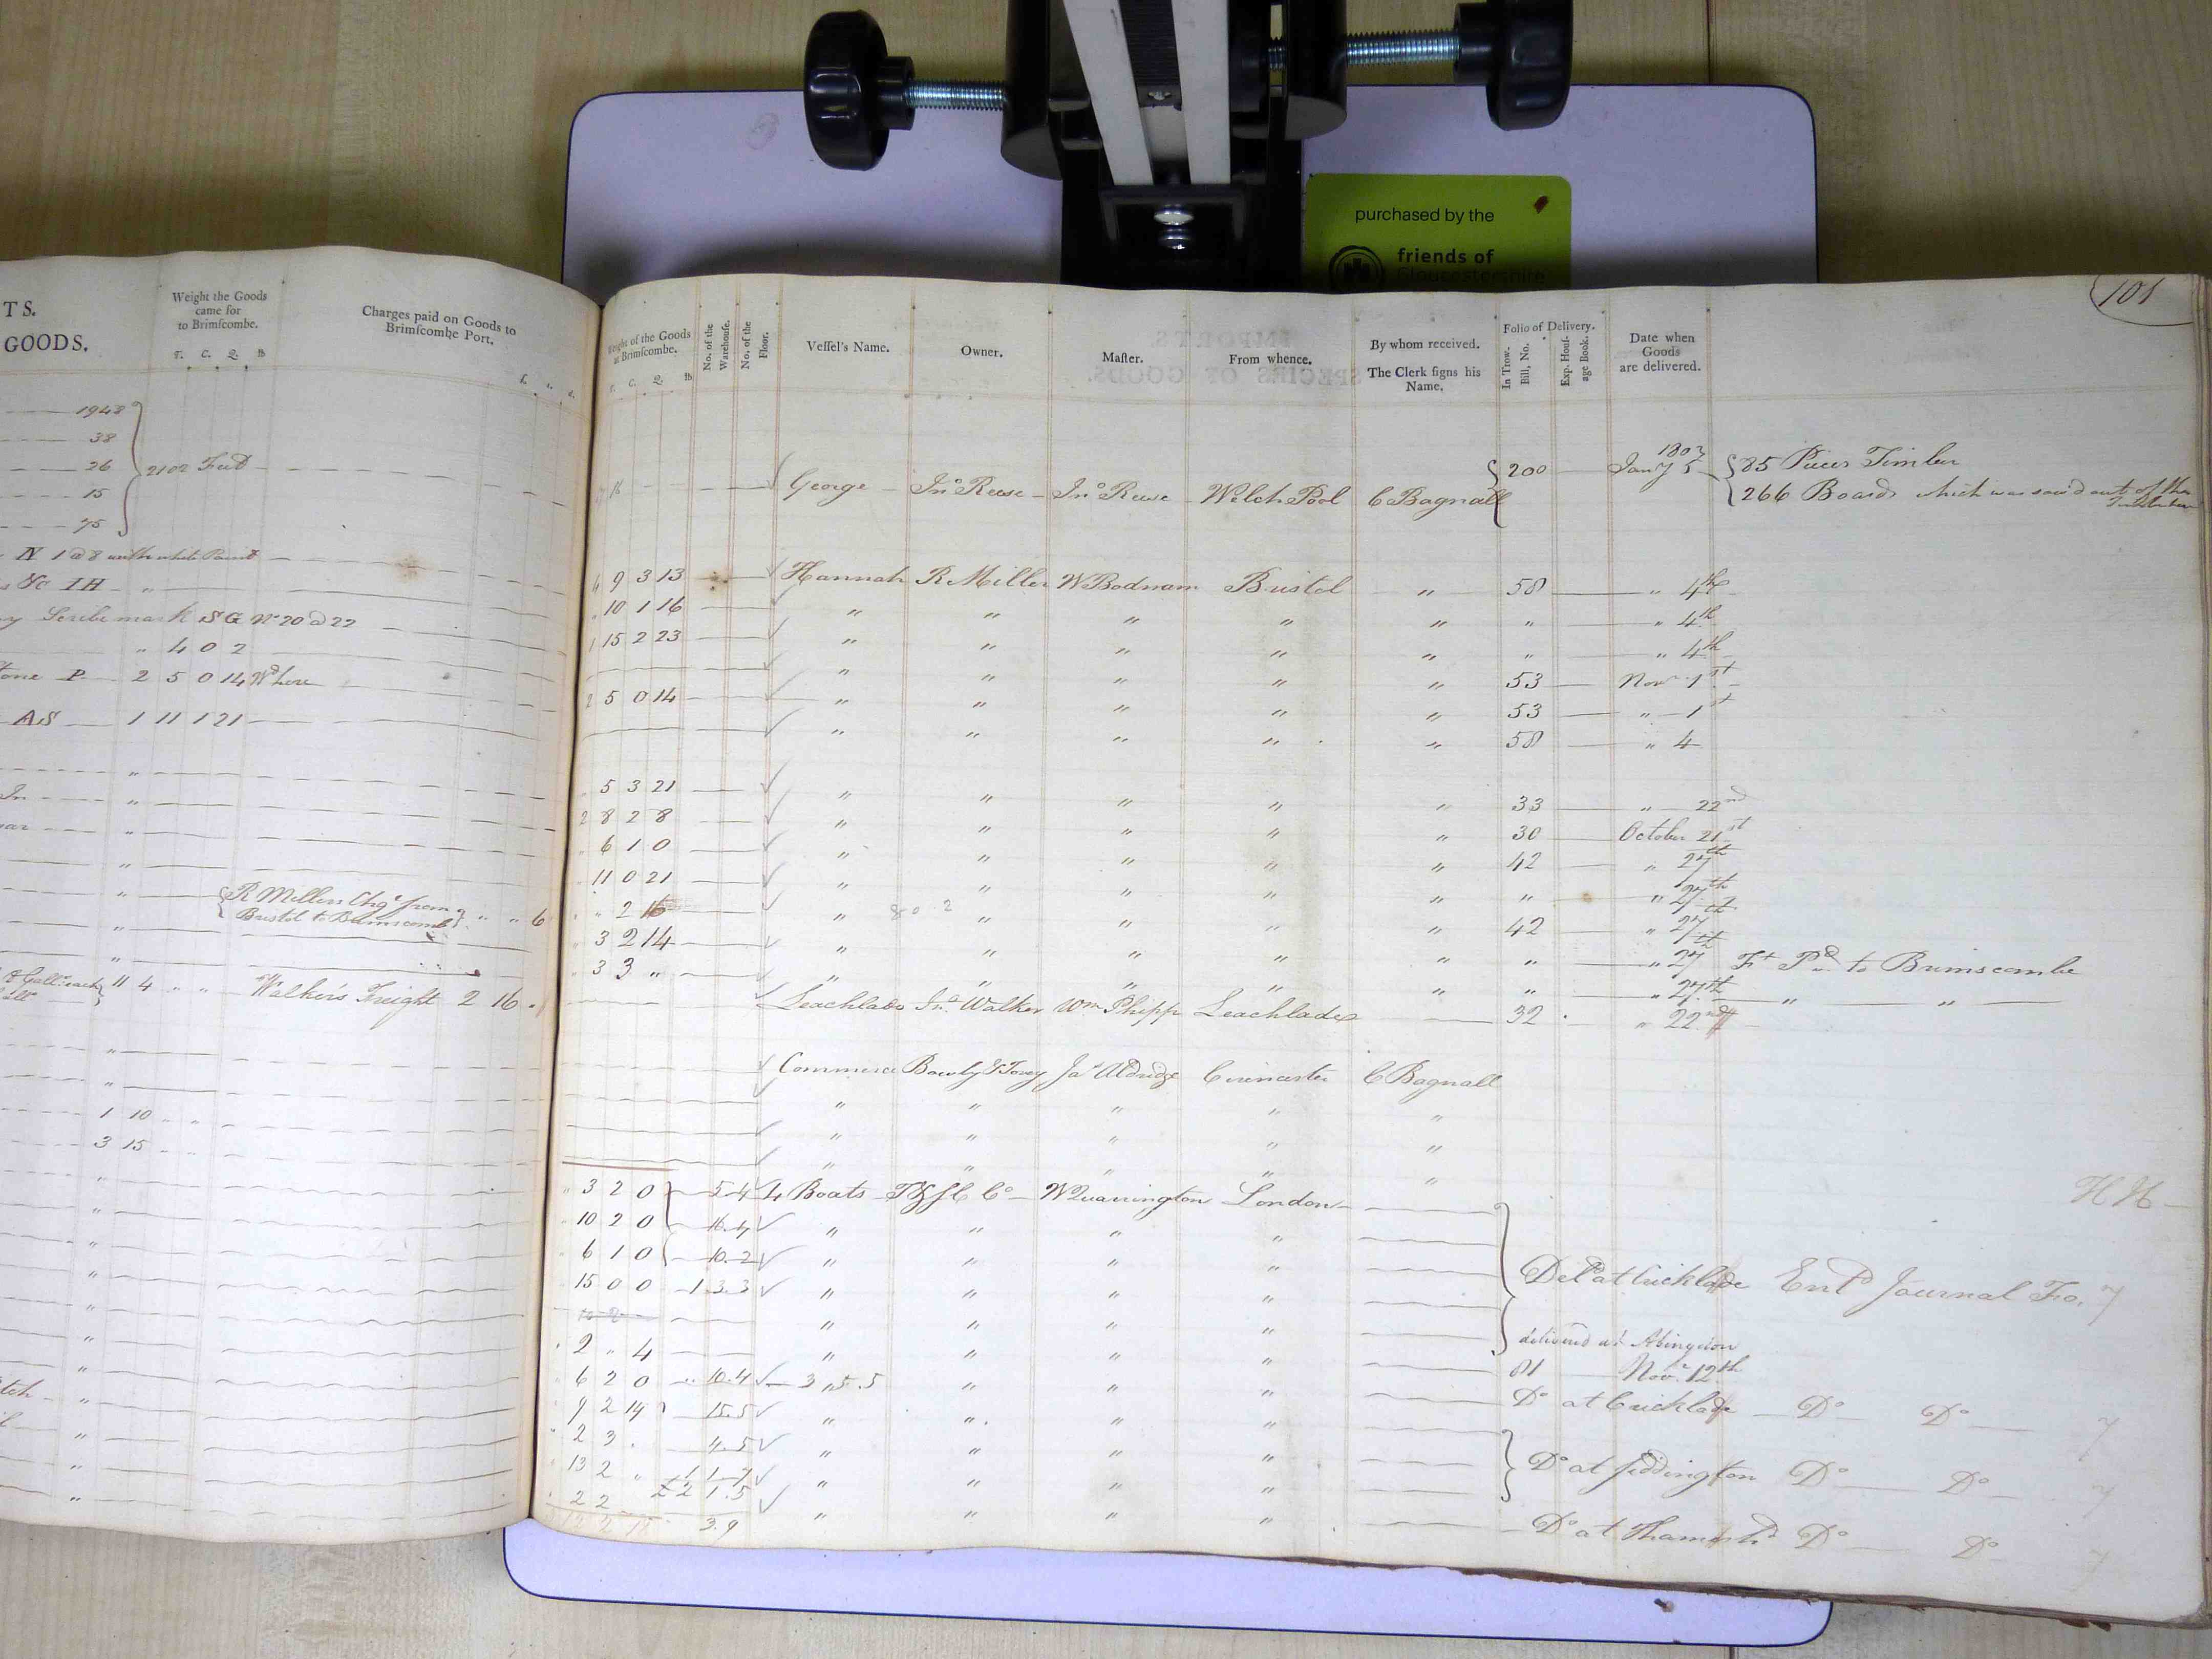 purchased by the
friends of
Gloucestershire
101
TS.
GOODS.
Weight the Goods
came for
to Brimſcombe.
T. C. Q. lb
Charges paid on Goods to
Brimſcombe Port.
1948
38
26
2102 Feet
15
75
IV 1 @ 8 with white Paint
& Co IH "
mark SG No 20 @ 22
" 4 0 2
P 2 5 0 14 Wd here
AS 1 11 1 21
"
"
"
"
"
R Millers Chge from " " 6
Bristol to Brimscomb
"
"
11 4 " " Walker's Freight 2 16 "
"
"
1 10 " "
3 15 " "
"
"
"
"
"
"
"
"
"
"
"
of the Goods
at Brimſcombe.
T. C. Q. lb
No. of the
Warehouſe.
No. of the
Floor.
Veſſel's Name.
Owner.
Maſter.
From whence.
By whom received.
The Clerk ſigns his
Name.
Folio of Delivery.
In Trow.
Bill, No.
Exp. Houſ-
age Book.
Date when
Goods
are delivered.
16 George Jno Reese Jno Reese Welch Pool C Bagnall 200 1803 Jany 5 85 Pieces Timber
266 Boards which was saw'd out of the
9 3 13 Hannah R Miller W Bodnam Bristol " 58 " 4th
10 1 16 " " " " " " " 4th
1 15 2 23 " " " " " " " 4th
" " " " " 53 Novr 1st
2 5 0 14 " " " " " 53 " 1st
" " " " " 58 " 4
5 3 21 " " " " " 33 " 22nd
2 8 2 8 " " " " " 30 October 21st
6 1 0 " " " " " 42 " 27th
11 0 21 " " " " " " " 27th
" 2 16 " 8 0 2 " " " " 42 " 27th
3 2 14 " " " " " " " 27th Ft Pd to Brimscombe
3 3 " " " " " " " " 27th " "
Leachlade Jno Walker Wm Phipps Leachlade 32 " 22nd
Commerce Bowly & Tovey Jas Aldridge Cirencester C Bagnall
" " " " "
" " " " "
" " " " "
HH
3 2 0 5 4 4 Boats T & S C Co W Quarrington London
10 2 0 16.4 " " " "
6 1 0 10.2 " " " "
15 0 0 1 3.3 " " " " Deld at Cricklade Entd Journal Fo. 7
" " " "
2 " 4 " " " " delivered at Abingdon
6 2 0 10.4 3 " 5.5 " " " 81 Novr 12th
9 2 14 15.5 " " " " Do at Cricklade Do Do 7
2 3 4.5 " " " "
13 2 " 1 1.7 " " " " Do at Siddington Do Do 7
2 2 £2 1.5 " " " "
3.9 Do at Thames hd Do Do 7